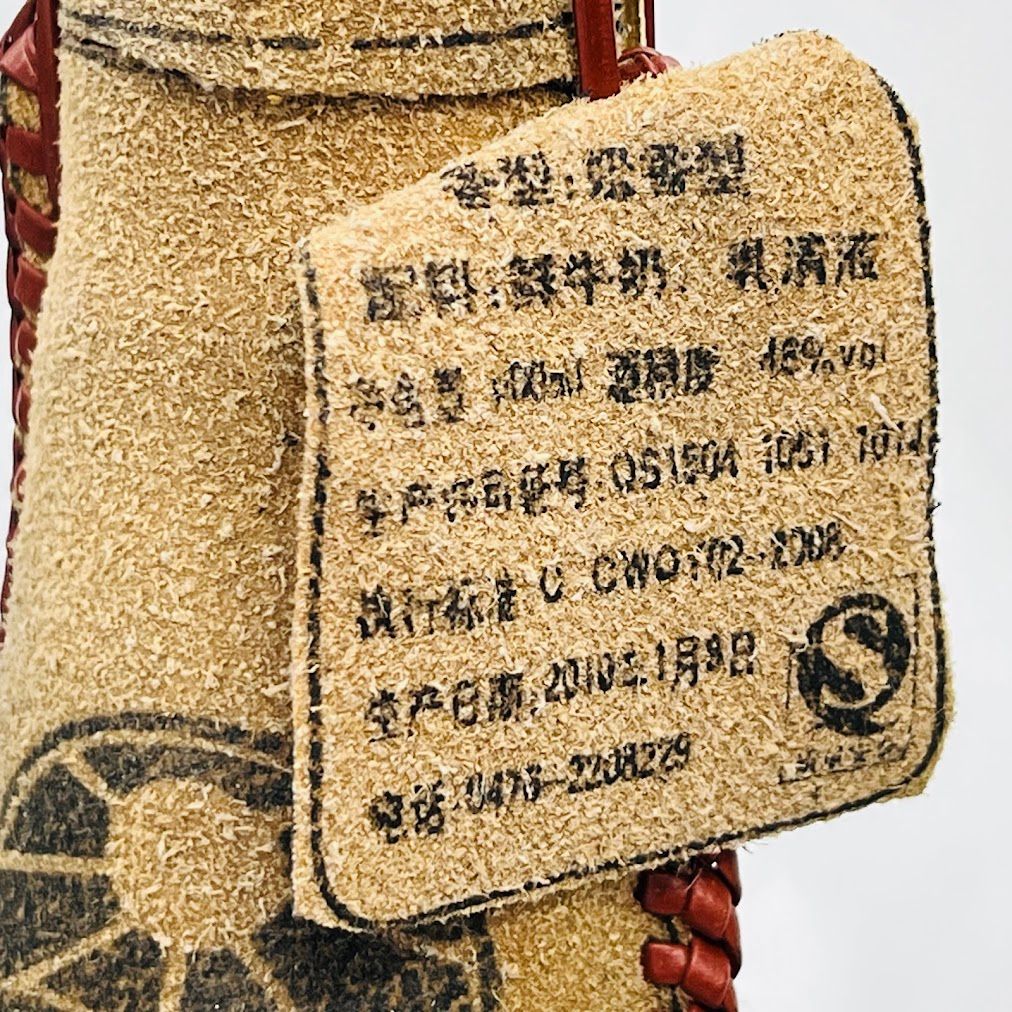 香型:浓香型
配料:鲜牛奶、乳清液
净含量 500ml 酒精度 46%vol
生产许可证号 QS1504 1051 1014
执行标准 Q CWQ102-2008
生产日期:2010年1月9日
电话:0476-2208229